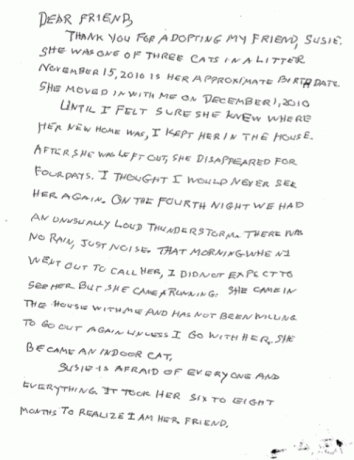 DEAR FRIEND,
THANK YOU FOR ADOPTING MY FRIEND, SUSIE.
SHE WAS ONE OF THREE CATS IN A LITTER
NOVEMBER 15, 2010 IS HER APPROXIMATE BIRTH DATE.
SHE MOVED IN WITH ME ON DECEMBER 1, 2010
UNTIL I FELT SURE SHE KNEW WHERE
HER NEW HOME WAS, I KEPT HER IN THE HOUSE.
AFTER SHE WAS LEFT OUT, SHE DISAPPEARED FOR
FOUR DAYS. I THOUGHT I WOULD NEVER SEE
HER AGAIN. ON THE FOURTH NIGHT WE HAD
AN UNUSUALLY LOUD THUNDERSTORM. THERE WAS
NO RAIN, JUST NOISE. THAT MORNING WHEN I
WENT OUT TO CALL HER, I DID NOT EXPECT TO
SEE HER BUT SHE CAME A RUNNING. SHE CAME IN
THE HOUSE WITH ME AND HAS NOT BEEN WILLING
TO GO OUT AGAIN UNLESS I GO WITH HER. SHE
BECAME AN INDOOR CAT.
SUSIE IS AFRAID OF EVERYONE AND
EVERYTHING. IT TOOK HER SIX TO EIGHT
MONTHS TO REALIZE I AM HER FRIEND.